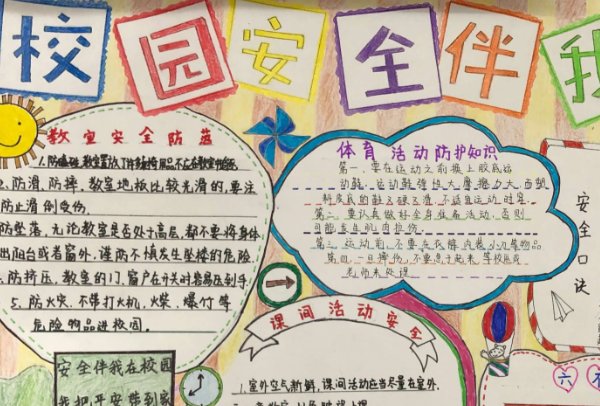 校园安全伴我
教室安全防范
1.防磕碰,教室
2.防滑、防摔,教室地板比较光滑的,要注
防止滑倒受伤.
防坠落,无论教室是否处于高层,都不要将身体
出阳台或者窗外,谨防不慎发生坠楼的危险
防挤压,教室的门,窗户在开关时容易压到手
5.防火灾,不带打火机,火柴,爆竹等
危险物品进校园.
安全伴我在校园
我把平安带到家
体育活动防护知识
第一,要在运动之前换上胶底运
动鞋,运动鞋弹性大,摩擦力大,而塑
料皮底的鞋又硬又滑,不适宜运动时穿.
第二,要认真做好全身准备活动,否则
可能发生肌肉拉伤.
第三,运动前,不要在衣袋内装小刀等物品
第四,一旦摔伤,不要急于起来,等校医或
老师来处理
安全口诀
课间活动安全
1.室外空气新鲜,课间活动应当尽量在室外.
六不